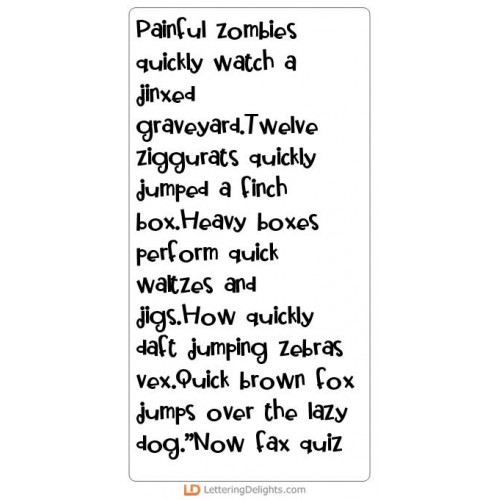 Painful zombies
quickly watch a
jinxed
graveyard.Twelve
ziggurats quickly
jumped a finch
box.Heavy boxes
perform quick
waltzes and
jigs.How quickly
daft jumping zebras
vex.Quick brown fox
jumps over the lazy
dog."Now fax quiz
LD LetteringDelights.com